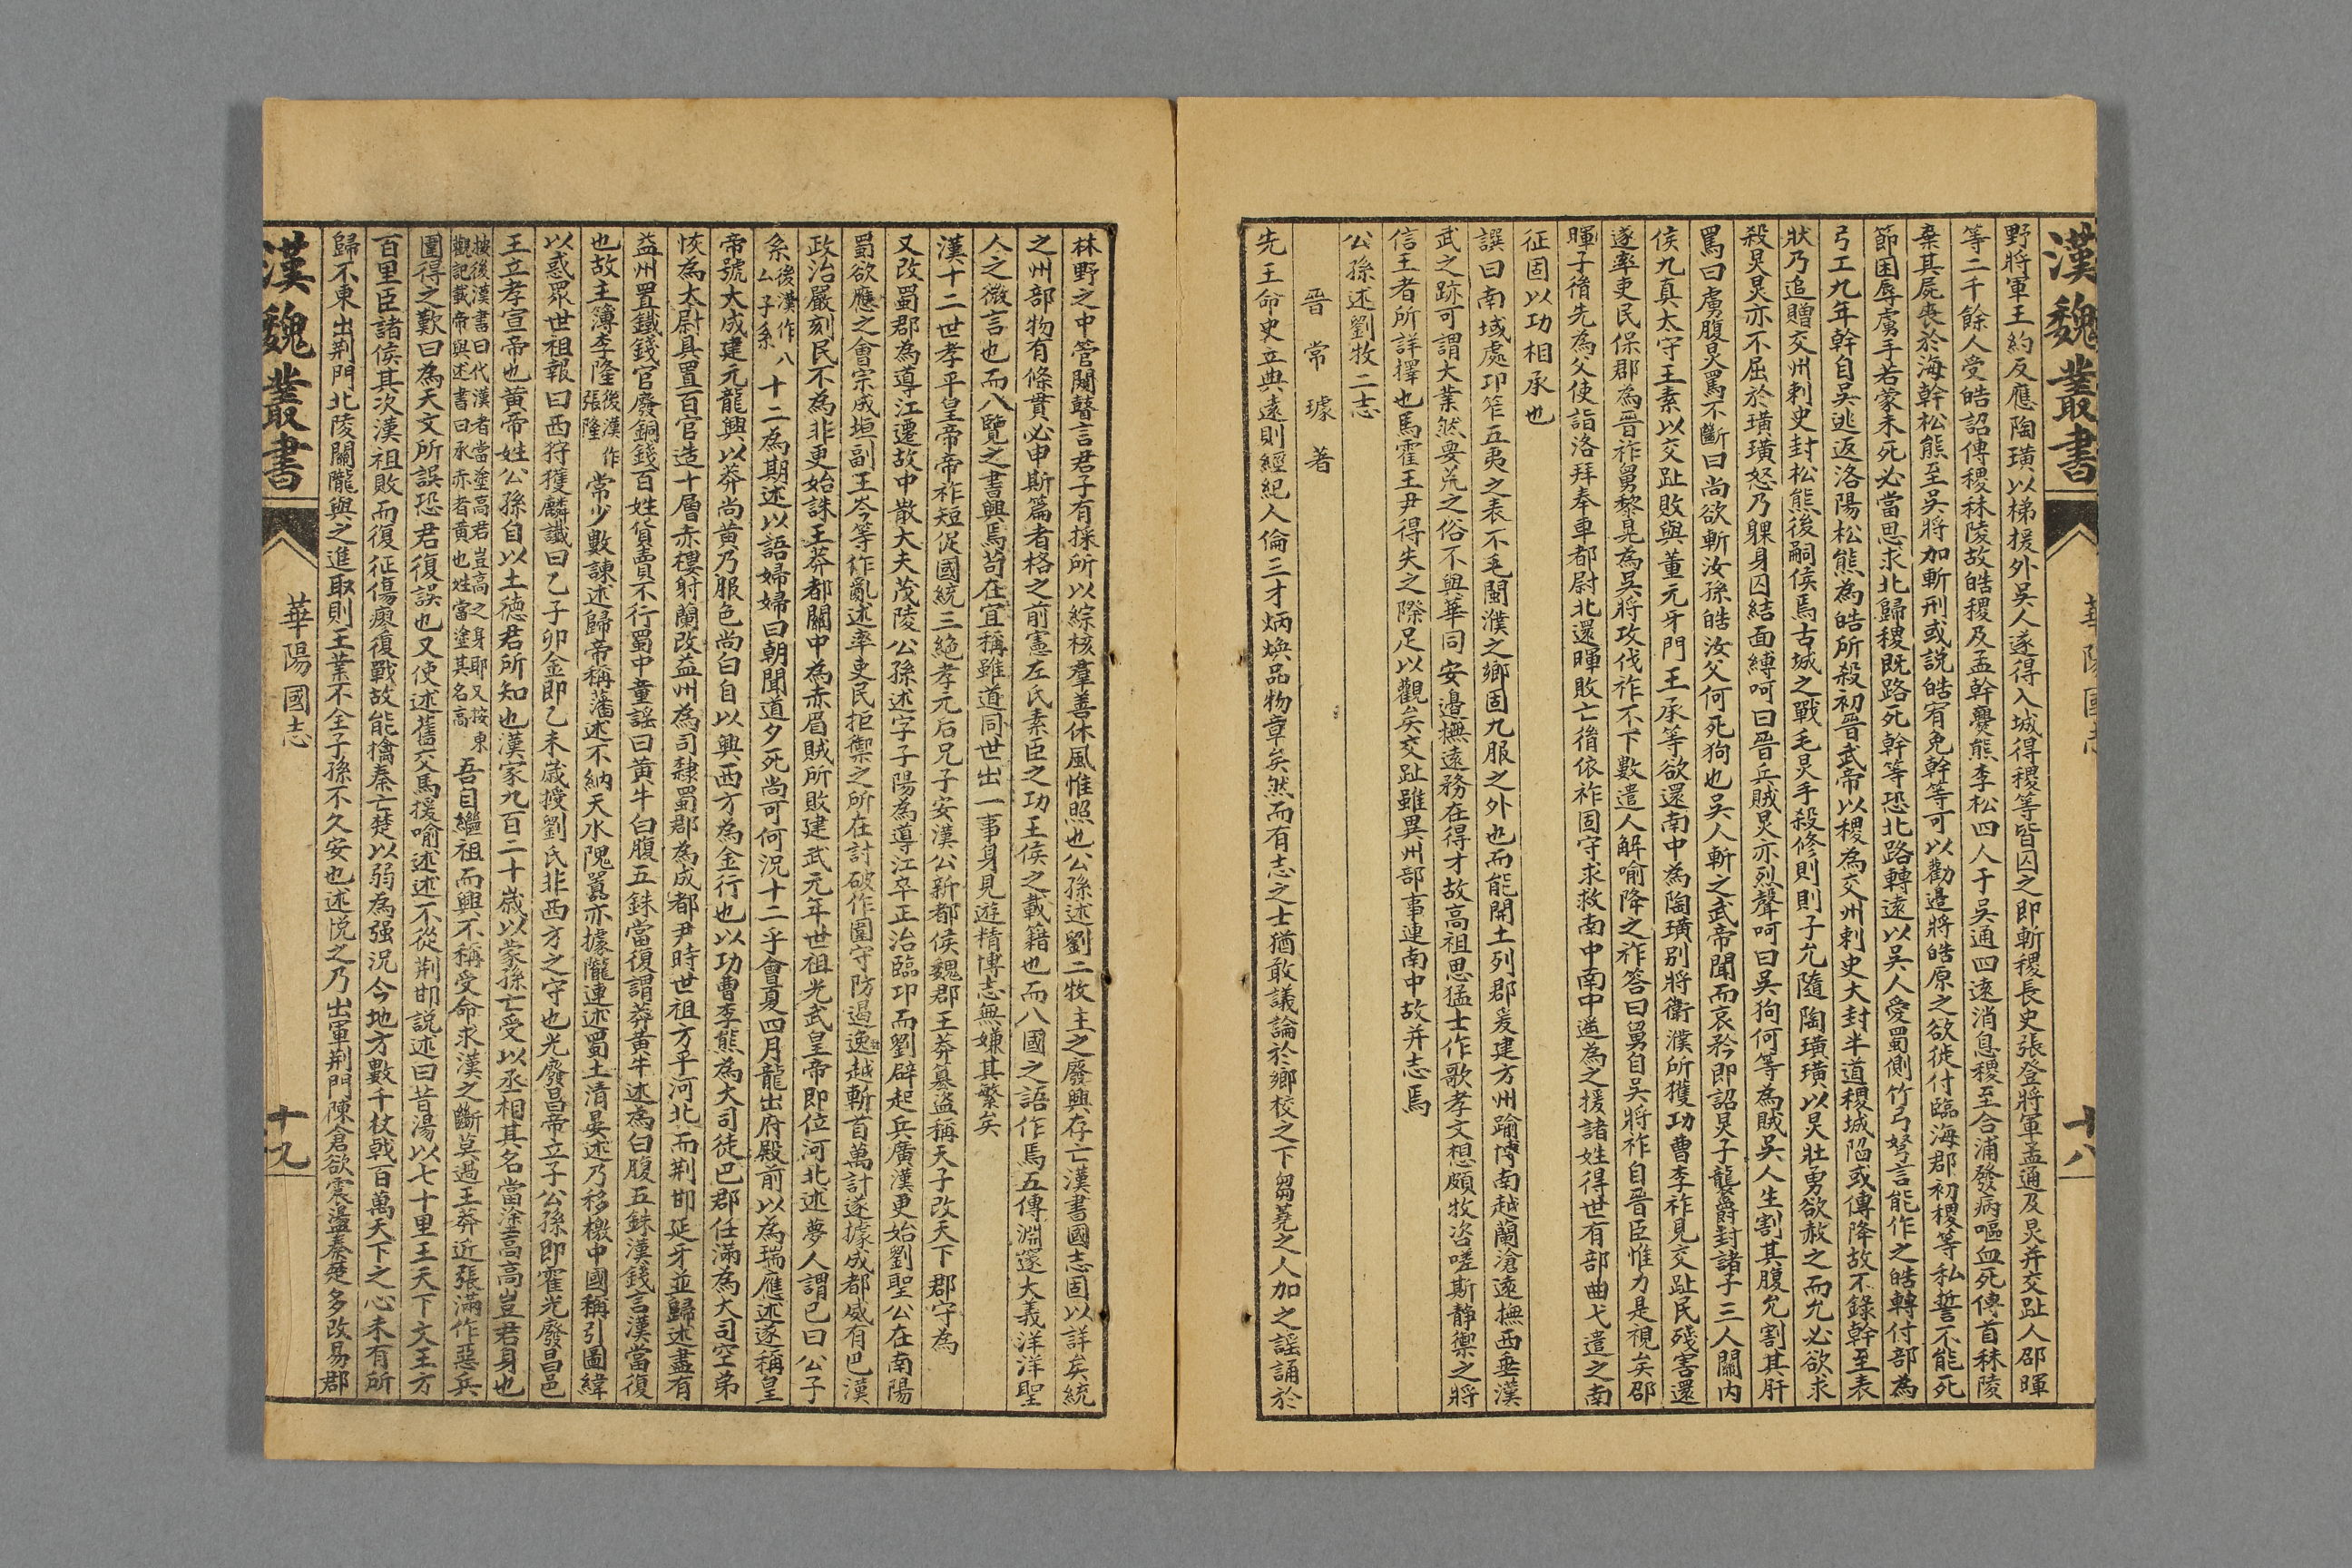 漢魏叢書 華陽國志 十八
野將軍王約反應陶璜以梯援外吳人遂得入城得稷等皆囚之即斬稷長史張登將軍孟通及炅并交趾人邵暉
等二千餘人受皓詔傳稷秣陵故皓稷及孟幹爨熊李松四人于吳通四遠消息稷至合浦發病嘔血死傳首秣陵
棄其屍喪於海幹松熊至吳將加斬刑或說皓宥免幹等可以勸邊將皓原之欲徙付臨海郡初稷等私誓不能死
節困辱虜手若蒙未死必當思求北歸稷既路死幹等恐北路轉遠以吳人愛蜀側竹弓弩言能作之皓轉付部為
弓工九年幹自吳逃返洛陽松熊為皓所殺初晉武帝以稷為交州刺史大封半道稷城陷或傳降故不錄幹至表
狀乃追贈交州刺史封松熊後嗣侯焉古城之戰毛炅手殺修則則子允隨陶璜璜以炅壯勇欲赦之而允必欲求
殺炅炅亦不屈於璜璜怒乃躶身囚結面縛呵曰晉兵賊炅亦烈聲呵曰吳狗何等為賊吳人生割其腹允割其肝
罵曰虜腹炅罵不斷曰尚欲斬汝孫皓汝父何死狗也吳人斬之武帝聞而哀矜即詔炅子襲爵封諸子三人關內
侯九真太守王素以交趾敗與董元牙門王承等欲還南中為陶璜別將衛濮所獲功曹李祚見交趾民殘害還
遂率吏民保郡為晉祚舅黎晃為吳將攻伐祚不下數遣人解喻降之祚答曰舅自吳將祚自晉臣惟力是視矣邵
暉子胤先為父使詣洛拜奉車都尉北還暉敗亡胤依祚固守求救南中南中遙為之援諸姓得世有部曲弋遣之南
征固以功相承也
譔曰南域處邛笮五夷之表不毛閩濮之鄉固九服之外也而能開土列郡爰建方州踰博南越蘭滄遠撫西垂漢
武之跡可謂大業然要荒之俗不與華同安邊撫遠務在得才故高祖思猛士作歌孝文想頗牧咨嗟斯靜禦之將
信王者所詳擇也馬霍王尹得失之際足以觀矣交趾雖異州部事連南中故并志焉
公孫述劉牧二志
晉常璩著
先王命史立典遠則經紀人倫三才炳煥品物章矣然而有志之士猶敢議論於鄉校之下芻蕘之人加之謡誦於
林野之中管闚瞽言君子有採所以綜核羣善休風惟照也公孫述劉二牧主之廢興存亡漢書國志固以詳矣統
之州部物有條貫必申斯篇者格之前憲左氏素臣之功王侯之載籍也而八國之語作焉五傳淵邃大義洋洋聖
人之微言也而八覽之書興焉苟在宜稱雖道同世出一事身見遊精博志無嫌其繁矣
漢十二世孝平皇帝帝祚短促國統三絶孝元后兄子安漢公新都侯魏郡王莽篡盜稱天子改天下郡守為
又改蜀郡為導江遷故中散大夫茂陵公孫述字子陽為導江卒正治臨邛而劉辟起兵廣漢更始劉聖公在南陽
蜀欲應之會宗成垣副王岑等作亂述率吏民拒禦之所在討破作圍守防遏逸越斬首萬計遂據成都威有巴漢
政治嚴刻民不為非更始誅王莽都關中為赤眉賊所敗建武元年世祖光武皇帝即位河北述夢人謂己曰公子
系後漢作八厶子系十二為期述以語婦婦曰朝聞道夕死尚可何況十二乎會夏四月龍出府殿前以為瑞應述遂稱皇
帝號大成建元龍興以莽尚黄乃服色尚白自以興西方為金行也以功曹李熊為大司徒巴郡任滿為大司空弟
恢為太尉具置百官造十層赤樓射蘭改益州為司隸蜀郡為成都尹時世祖方平河北而荆邯延牙並歸述盡有
益州置鐵錢官廢銅錢百姓貨賣不行蜀中童謡曰黄牛白腹五銖當復謂莽黄牛述為白腹五銖漢錢言漢當復
也故主簿李隆後漢作張隆常少數諫述歸帝稱藩述不納天水隗囂亦據隴連述蜀土清晏述乃移檄中國稱引圖緯
以惑眾世祖報曰西狩獲麟讖曰乙子卯金即乙未歲授劉氏非西方之守也光廢昌帝立子公孫即霍光廢昌邑
王立孝宣帝也黄帝姓公孫自以土德君所知也漢家九百二十歲以蒙孫亡受以丞相其名當塗高高豈君身也
按後漢書曰代漢者當塗高君豈高之身耶又按東觀記載帝與述書曰承赤者黄也姓當塗其名高吾自繼祖而興不稱受命求漢之斷莫過王莽近張滿作惡兵
圍得之歎曰為天文所誤恐君復誤也又使述舊交馬援喻述述不從荆邯說述曰昔湯以七十里王天下文王方
百里臣諸侯其次漢祖敗而復征傷瘳復戰故能擒秦亡楚以弱為强況今地方數千杖戟百萬天下之心未有所
歸不東出荆門北陵關隴與之進取則王業不全子孫不久安也述悦之乃出軍荆門陳倉欲震盪秦楚多改易郡
漢魏叢書 華陽國志 十九